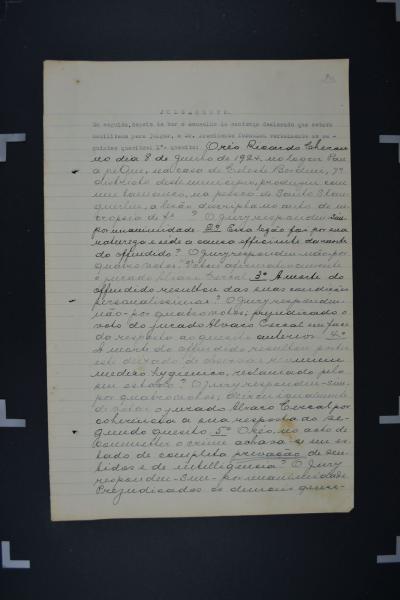 JULGAMENTO.
Em seguida, depois de ter o conselho de sentença declarado que estava
habilitado para julgar, o Dr. Presidente formulou verbalmente os se-
guintes quesitos: 1º quesito: O réo Ricardo
no dia 8 de Junho de 1924, no logar
na casa de Celeste 7º
districto deste municipio, produziu com
um na pessoa de Santo
a lesão descripta no auto de ne-
cropsia de fs. ? O Jury respondeu sim
por unanimidade. 2º Essa lesão foi por sua
natureza e séde a causa efficiente da morte
do offendido? O Jury respondeu-não-por
quatro votos.
o jurado Alvaro 3º A morte do
offendido resultou das suas condições
personalissimas? O Jury respondeu
não-por quatro votos; prejudicado o
voto do jurado Alvaro em face
da resposta ao quesito anterior. 4º
A morte do offendido resultou
ter deixado de observar
medico hygienico, reclamado pelo
seu estado? O Jury respondeu-sim-
por quatro votos;
de votar o jurado Alvaro por
coherencia a sua resposta ao se-
gundo quesito. 5º O réo, no acto de
commetter o crime achava-se em es-
tado de completa privação de sen-
tidos e de intelligencia? O Jury
respondeu-sim-por unanimidade
Prejudicados os demais quesi-